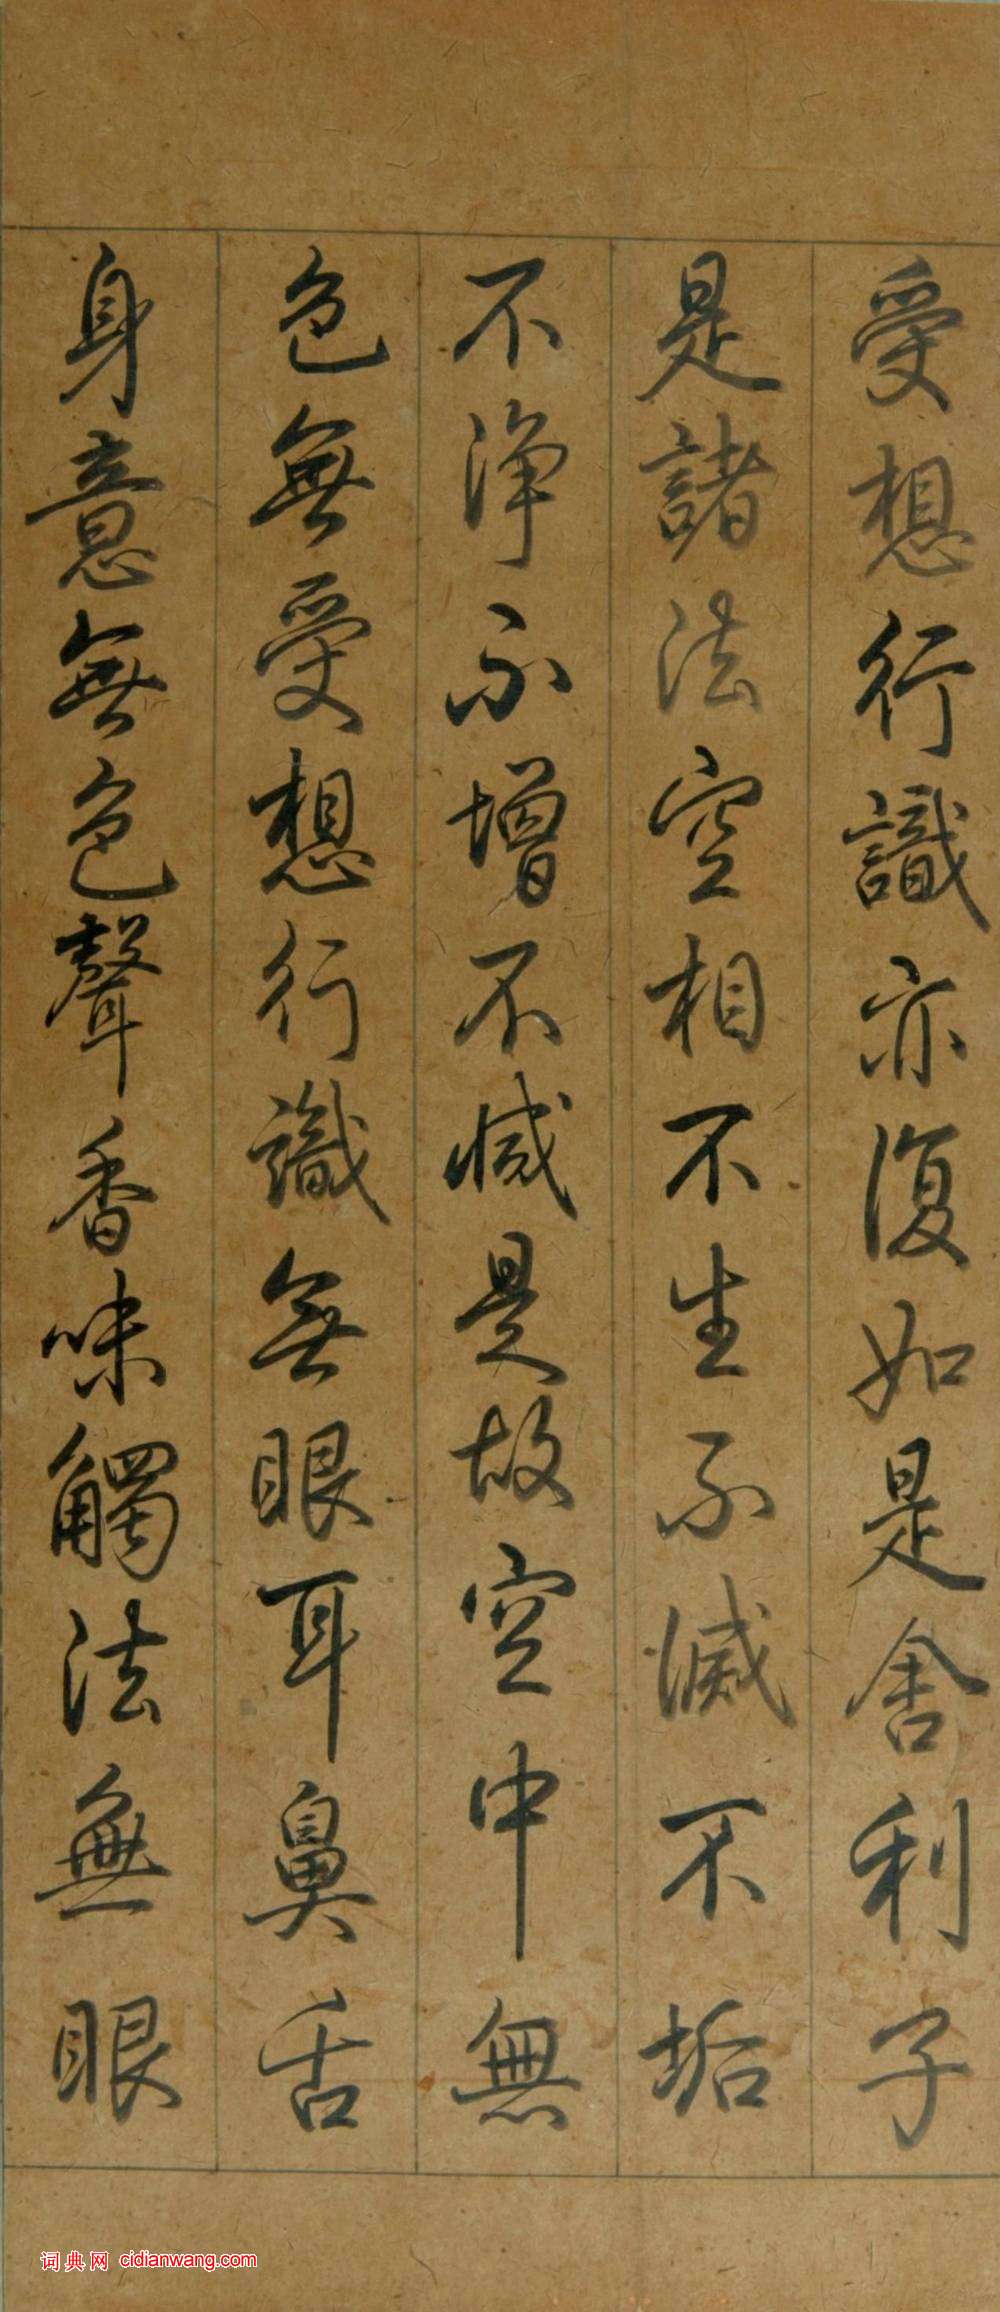 受想行識亦復如是舍利子
是諸法空相不生不滅不垢
不淨不增不減是故空中無
色無受想行識無眼耳鼻舌
身意無色聲香味觸法無眼
词典网 cidianwang.com